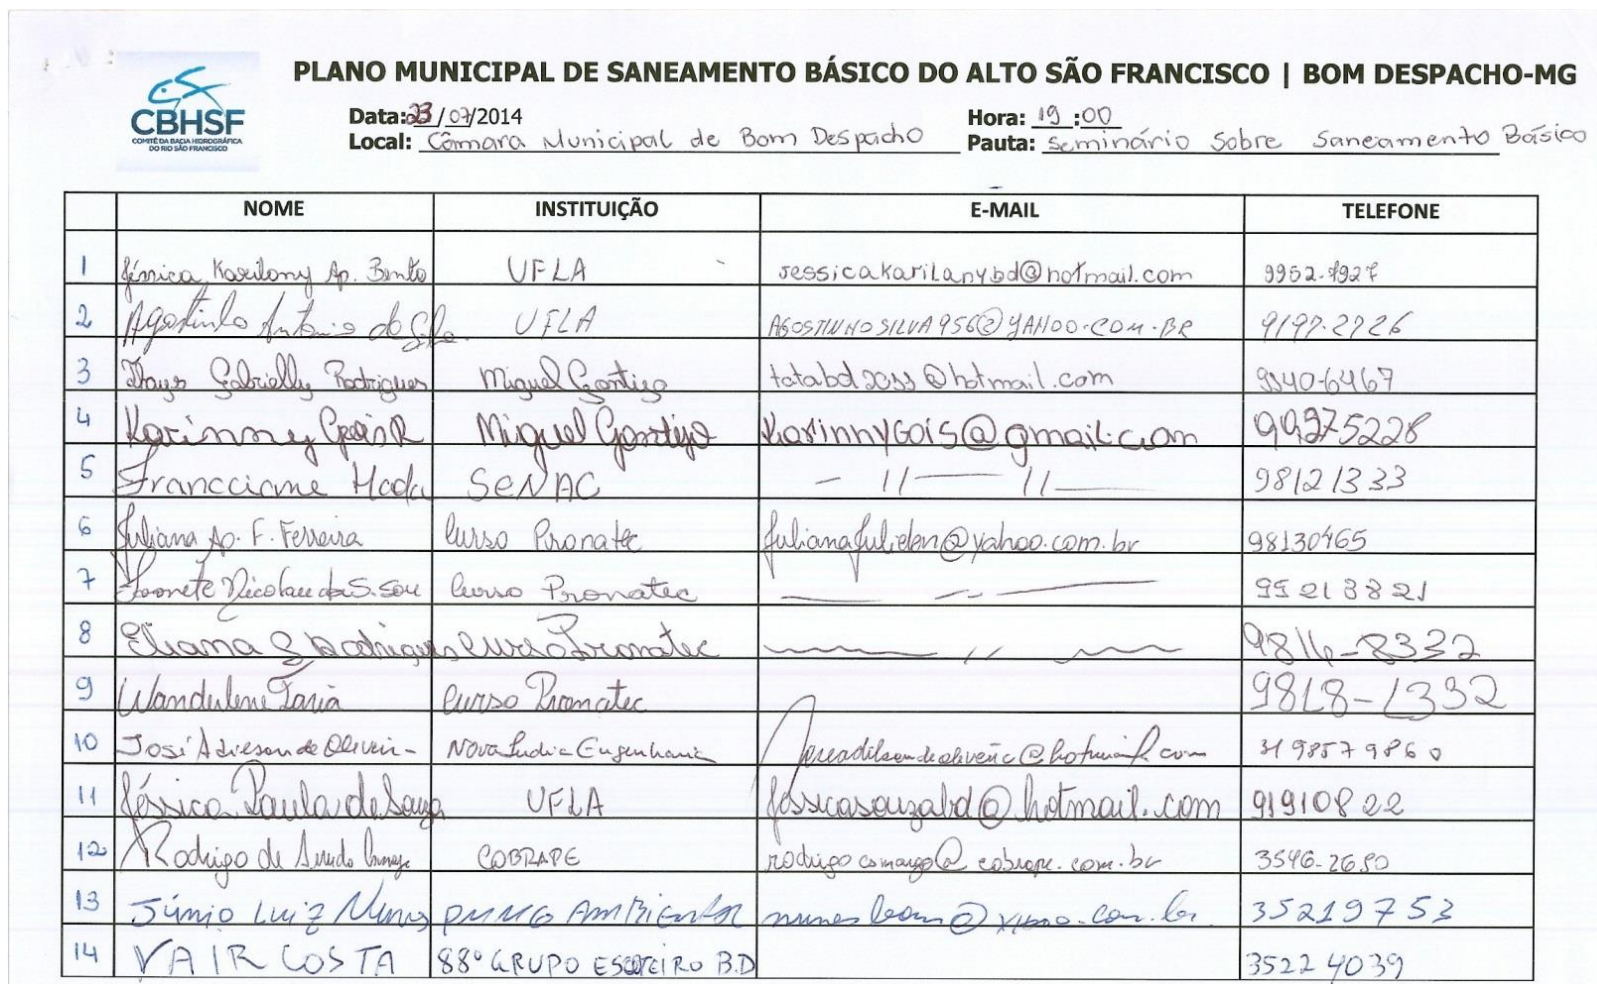 PLANO MUNICIPAL DE SANEAMENTO BÁSICO DO ALTO SÃO FRANCISCO | BOM DESPACHO-MG
CBHSF
COMITÊ DA BACIA HIDROGRÁFICA
DO RIO SÃO FRANCISCO
Data: 23/07/2014 Hora: 19:00
Local: Câmara Municipal de Bom Despacho Pauta: Seminário Sobre Saneamento Básico
NOME INSTITUIÇÃO E-MAIL TELEFONE
1 Jéssica Karilany Ap. Bento UFLA jessicakarilanybd@hotmail.com 9952-7927
2 Agostinho Antonio da Silva UFLA AGOSTINHOSILVA956@YAHOO.COM.BR 9197-2726
3 Thays Gabrielly Rodrigues Miguel Gontijo tatabd2011@hotmail.com 9140-6467
4 Karinny Gois R Miguel Gontijo KarinnyGois@gmail.com 99375228
5 Francciane SENAC - 11 — 11 — 98121333
6 Juliana Ap. F. Ferreira Curso Pronatec @yahoo.com.br 98130465
7 Ivonete Nicolau da S. Sou Curso Pronatec 99213821
8 Eliana S Rodrigues Curso Pronatec 9816-8332
9 Wanderlene Faria Curso Pronatec 9818-1332
10 José Adilson de Oliveir- Nova Engenharia @hotmail.com 31 98579860
11 Jéssica Paula de Souza UFLA jessicasouzabd@hotmail.com 91910822
12 Rodrigo de COBRAPE rodrigocamargo@cobrape.com.br 3546-2650
13 Júnio Luiz Nunes PMMG AMBIENTAL 35219753
14 VAIR COSTA 88º GRUPO ESCOTEIRO B.D 35224039